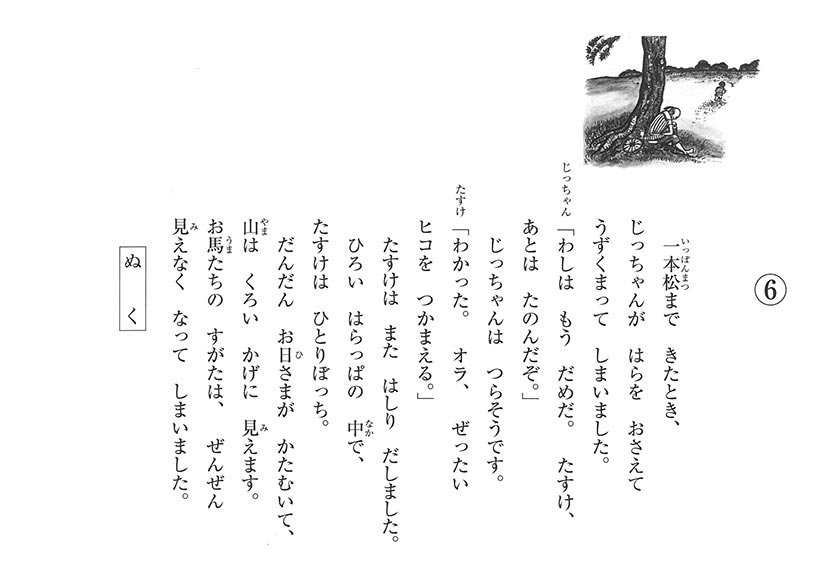 ⑥
一本松まで　きたとき、
じっちゃんが　はらを　おさえて
うずくまって　しまいました。
じっちゃん「わしは　もう　だめだ。　たすけ、
あとは　たのんだぞ。」
じっちゃんは　つらそうです。
たすけ「わかった。　オラ、　ぜったい
ヒコを　つかまえる。」
たすけは　また　はしり　だしました。
ひろい　はらっぱの　中で、
たすけは　ひとりぼっち。
だんだん　お日さまが　かたむいて、
山は　くろい　かげに　見えます。
お馬たちの　すがたは、　ぜんぜん
見えなく　なって　しまいました。
ぬ　く